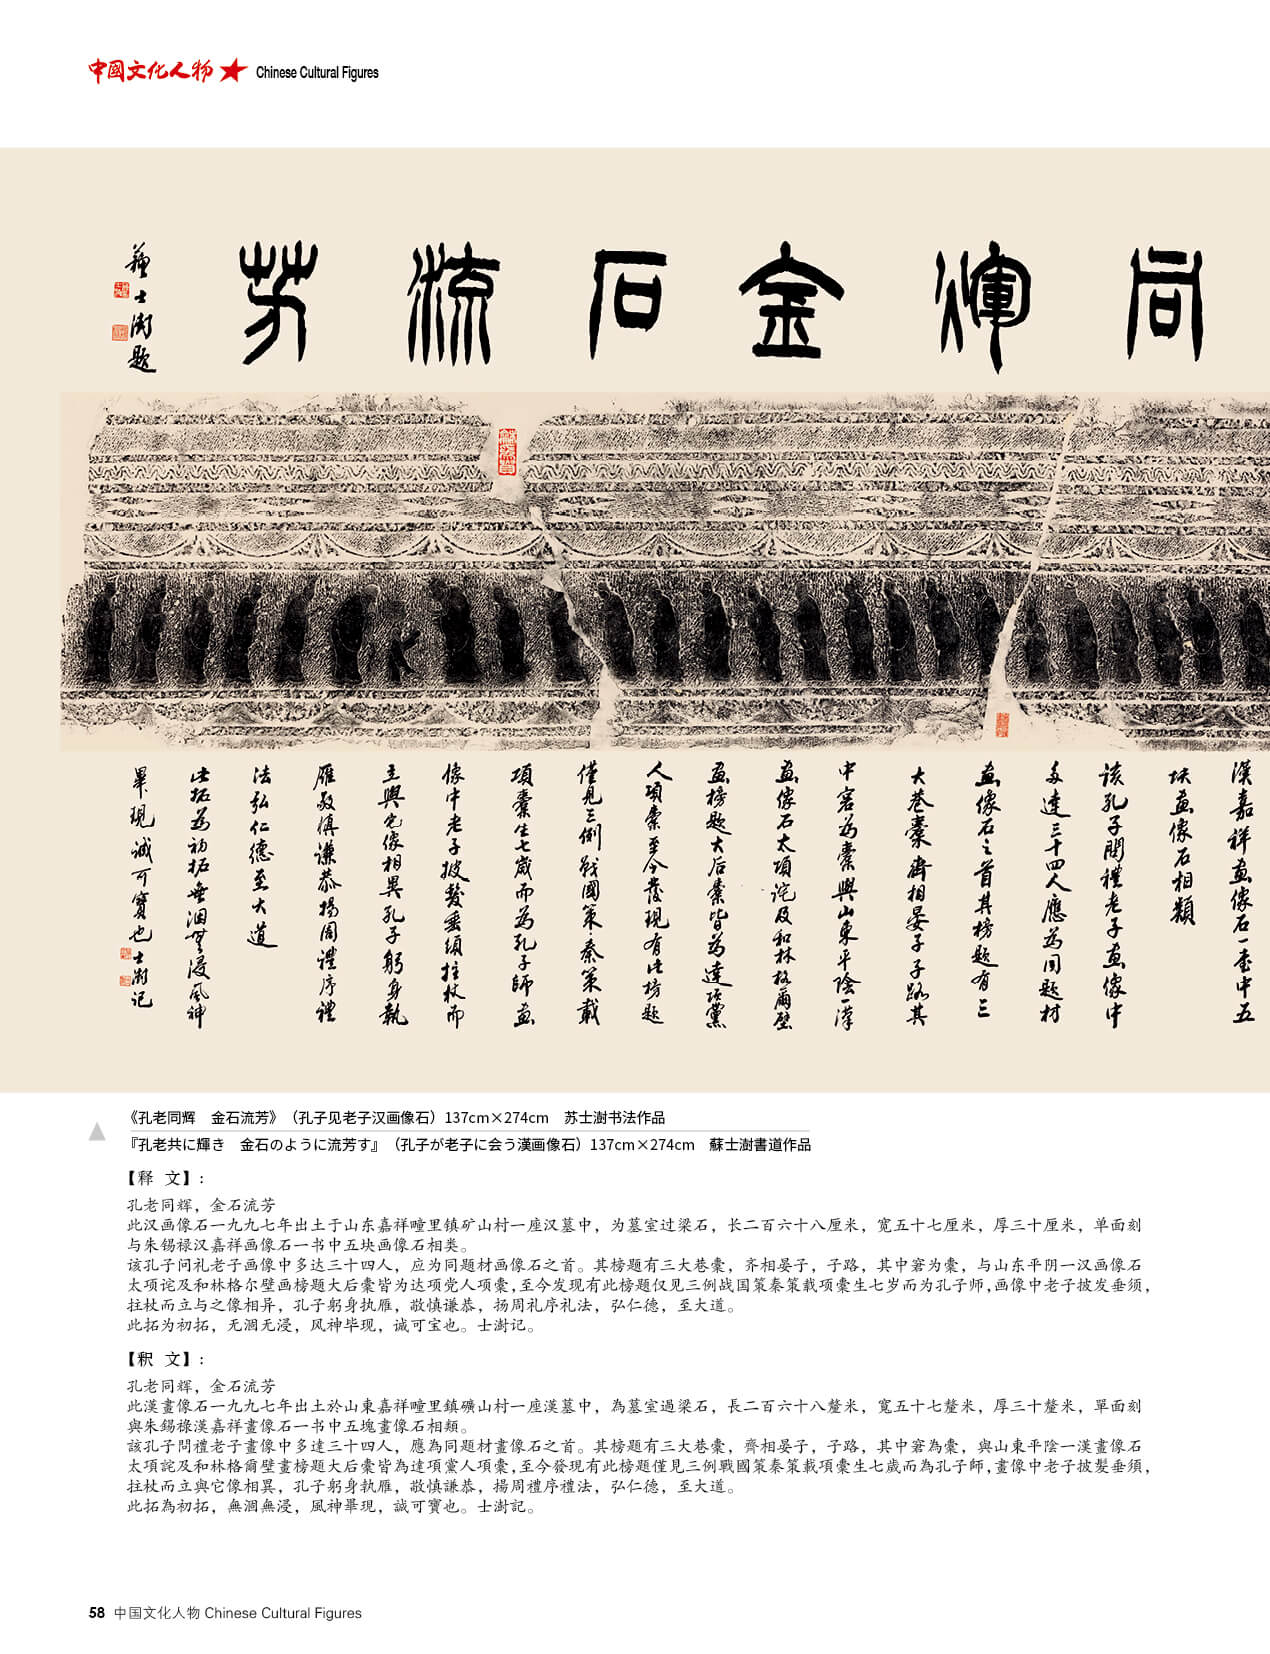 中國文化人物 Chinese Cultural Figures
同輝金石流芳
蘇士澍題
漢嘉祥畫像石一書中五
块畫像石相類
该孔子問禮老子畫像中
多達三十四人應為同題材
畫像石之首其榜題有三
大巷橐齊相晏子子路其
中窘为橐與山東平陰一漢
畫像石太項詫及和林格爾壁
畫榜題大后橐皆为達項黨
人項橐至今發現有此榜題
僅見三例戰國策秦策載
項橐生七歲而為孔子師畫
像中老子披髮垂須拄杖而
立與它像相異孔子躬身執
雁敬慎謙恭揚周禮序禮
法弘仁德至大道
此拓为初拓無洇無浸風神
畢現诚可寶也士澍记
《孔老同辉　金石流芳》（孔子见老子汉画像石）137cm×274cm　苏士澍书法作品
『孔老共に輝き　金石のように流芳す』（孔子が老子に会う漢画像石）137cm×274cm　蘇士澍書道作品
【释 文】:
孔老同辉，金石流芳
此汉画像石一九九七年出土于山东嘉祥疃里镇矿山村一座汉墓中，为墓室过梁石，长二百六十八厘米，宽五十七厘米，厚三十厘米，单面刻
与朱锡禄汉嘉祥画像石一书中五块画像石相类。
该孔子问礼老子画像中多达三十四人，应为同题材画像石之首。其榜题有三大巷橐，齐相晏子，子路，其中窘为橐，与山东平阴一汉画像石
太项诧及和林格尔壁画榜题大后橐皆为达项党人项橐，至今发现有此榜题仅见三例战国策秦策载项橐生七岁而为孔子师，画像中老子披发垂须，
拄杖而立与之像相异，孔子躬身执雁，敬慎谦恭，扬周礼序礼法，弘仁德，至大道。
此拓为初拓，无洇无浸，风神毕现，诚可宝也。士澍记。
【釈 文】:
孔老同辉，金石流芳
此漢畫像石一九九七年出土於山東嘉祥疃里鎮礦山村一座漢墓中，為墓室過梁石，長二百六十八釐米，寬五十七釐米，厚三十釐米，單面刻
與朱錫祿漢嘉祥畫像石一书中五塊畫像石相類。
該孔子問禮老子畫像中多達三十四人，應為同題材畫像石之首。其榜題有三大巷橐，齊相晏子，子路，其中窘為橐，與山東平陰一漢畫像石
太項詫及和林格爾壁畫榜題大后橐皆為達項黨人項橐，至今發現有此榜題僅見三例戰國策秦策載項橐生七歲而為孔子師，畫像中老子披髮垂須，
拄杖而立與它像相異，孔子躬身執雁，敬慎謙恭，揚周禮序禮法，弘仁德，至大道。
此拓為初拓，無洇無浸，風神畢現，誠可寶也。士澍記。
58 中国文化人物 Chinese Cultural Figures